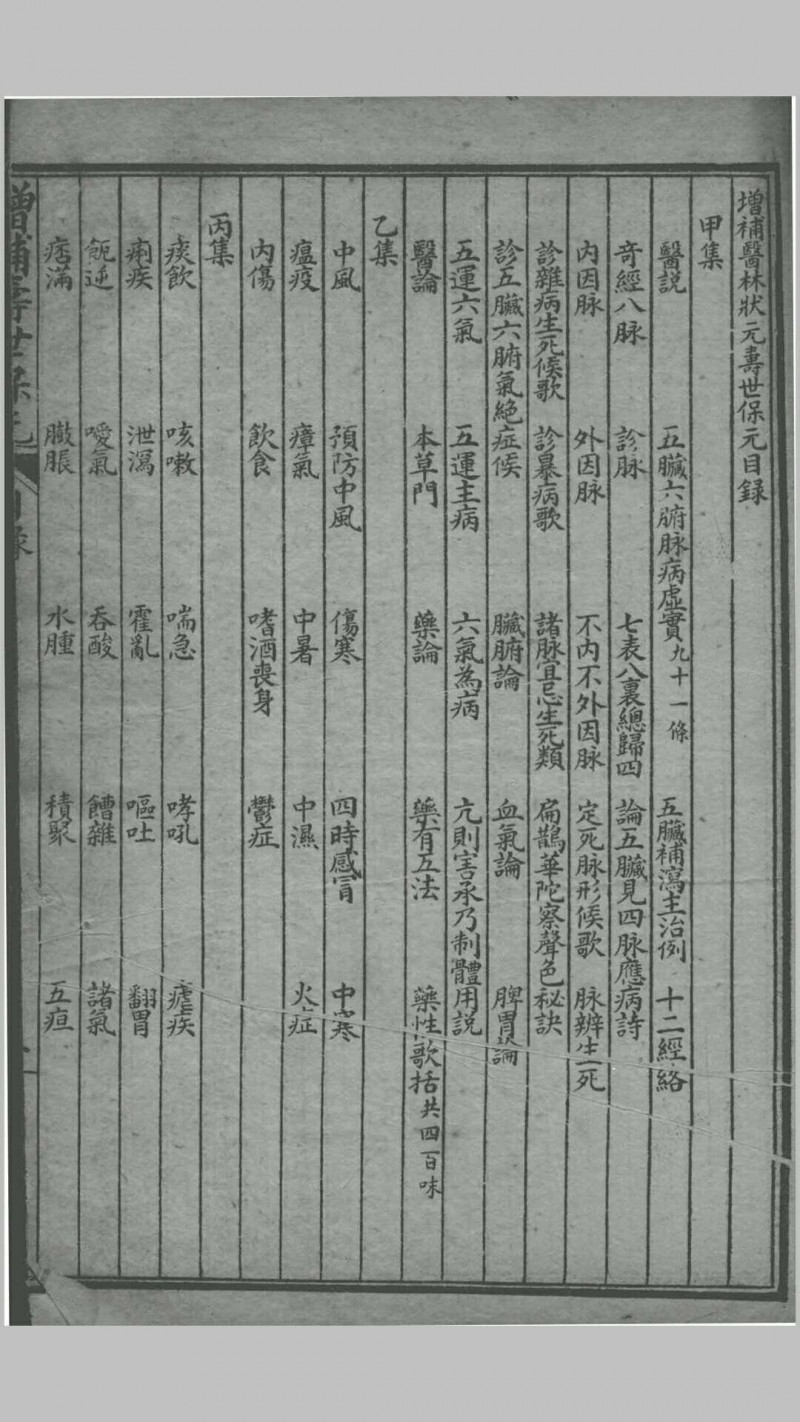 增補醫林狀元壽世保元目錄
甲集
醫説 五臟六腑脉病虛實九十一條 五臟補瀉主治例 十二經絡
奇經八脉 診脉 七表八裏總歸四 論五臟見四脉應病詩
内因脉 外因脉 不内不外因脉 定死脉形候歌 脉辨生死
診雜病生死候歌 診暴病歌 諸脉宜忌生死類 扁鵲華陀察聲色秘訣
診五臟六腑氣絶症候 臟腑論 血氣論 脾胃論
五運六氣 五運主病 六氣為病 亢則害承乃制體用説
醫論 本草門 藥論 藥有五法 藥性歌括共四百味
乙集
中風 預防中風 傷寒 四時感冒 中寒
瘟疫 瘴氣 中暑 中濕 火症
内傷 飲食 嗜酒喪身 鬱症
丙集
痰飲 咳嗽 喘急 哮吼 瘧疾
痢疾 泄瀉 霍亂 嘔吐 翻胃
呃逆 噯氣 吞酸 饋雜 諸氣
痞滿 臌脹 水腫 積聚 五疸
增補壽世保元 目錄